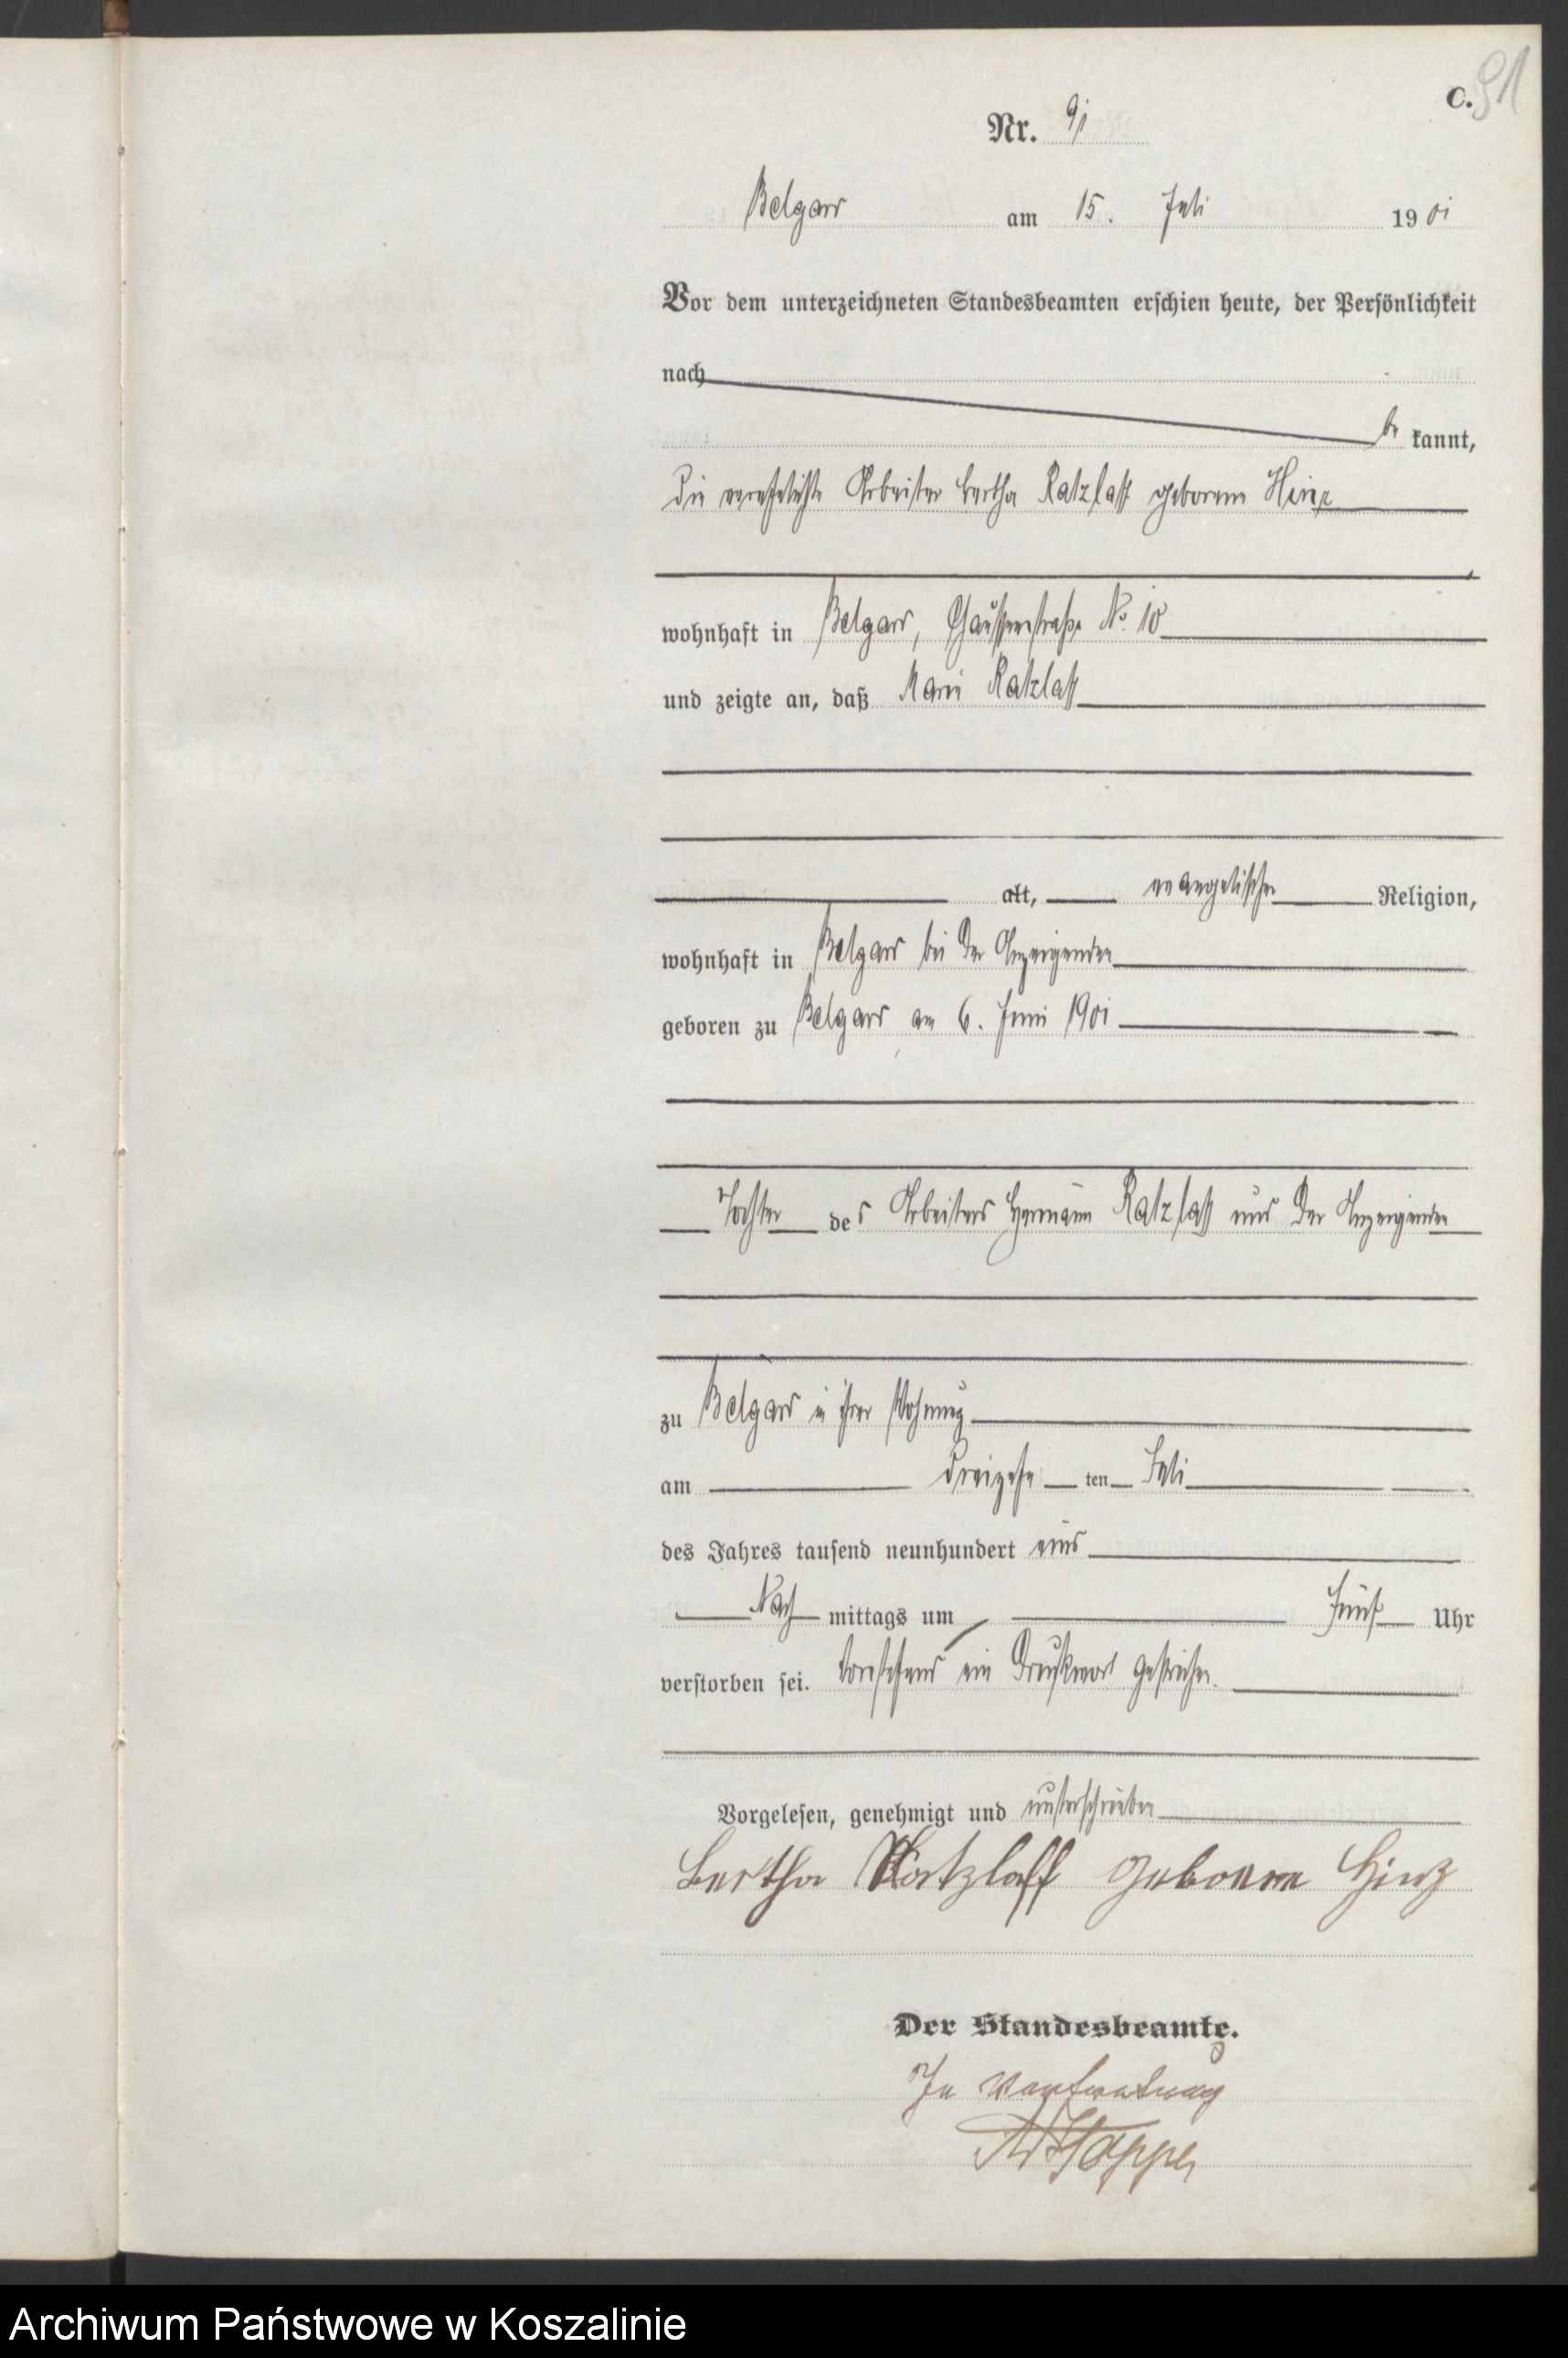 C. 91
Nr. 91
Belgard am 15. Juli 1901
Vor dem unterzeichneten Standesbeamten erschien heute, der Persönlichkeit
nach
be kannt,
die verehelichte Arbeiter Bertha Ratzlaff geborene Hinz
wohnhaft in Belgard, Chausseestraße No. 10
und zeigte an, daß Marie Ratzlaff
alt, evangelischer Religion,
wohnhaft in Belgard bei der Anzeigenden
geboren zu Belgard am 6. Juni 1901
Tochter des Arbeiters Hermann Ratzlaff und der Anzeigenden
zu Belgard in ihrer Wohnung
am dreizehn ten Juli
des Jahres tausend neunhundert eins
Nach mittags um fünf Uhr
verstorben sei. Vorstehend ein Druckwort gestrichen.
Vorgelesen, genehmigt und unterschrieben
Bertha Ratzlaff geborene Hinz
Der Standesbeamte.
In Vertretung
Archiwum Państwowe w Koszalinie